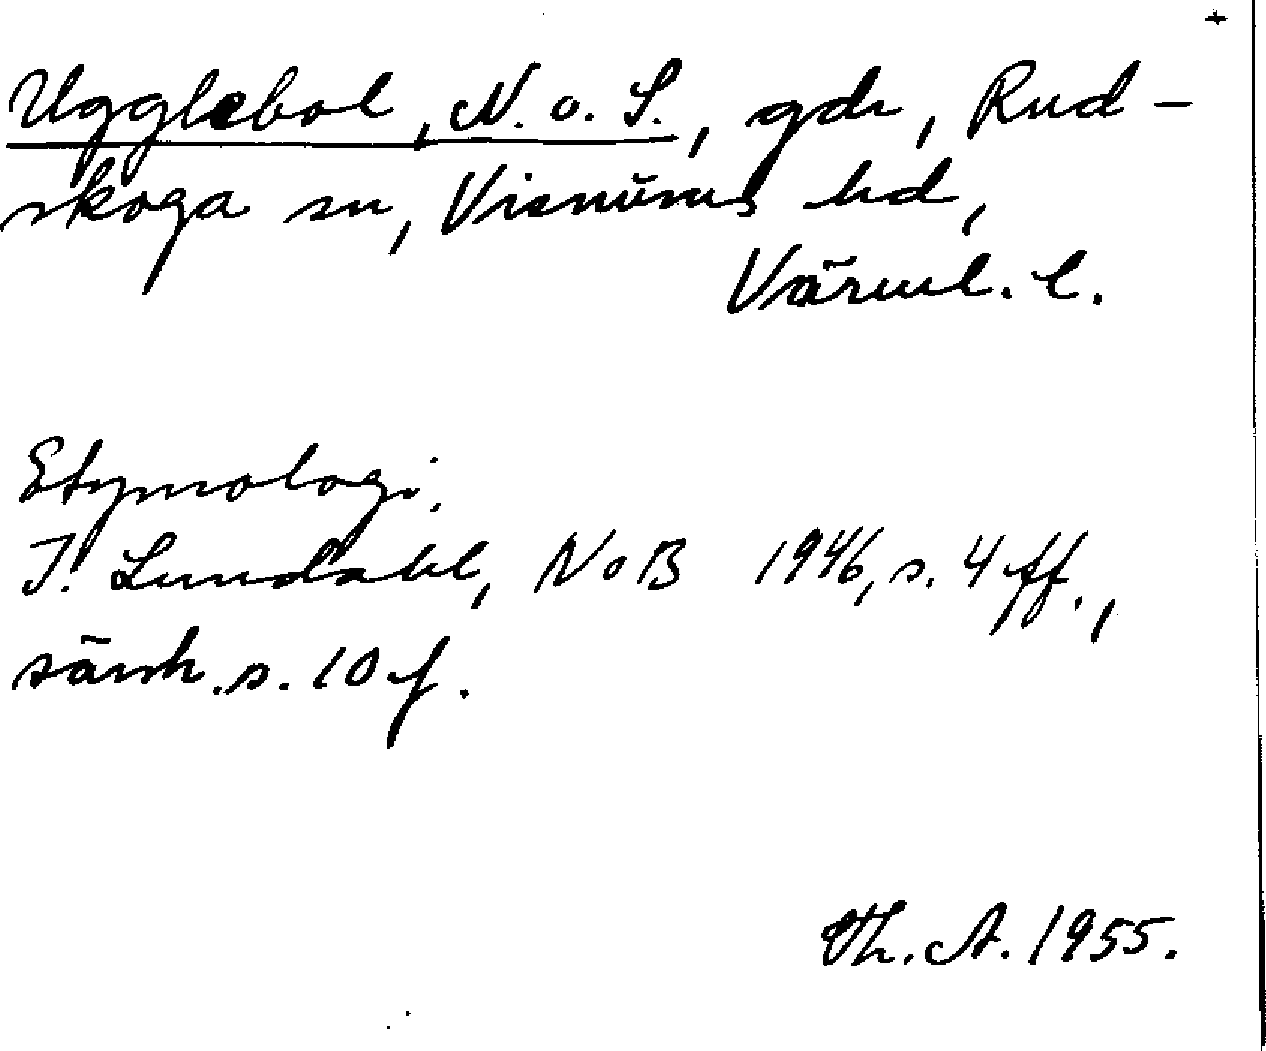 +
Ugglebol, N. o. S., gdr, Rud-
skoga sn, Visnums hd,
Värml. l.
Etymologi.
I. Lundahl, NoB 1946, s. 4 ff.,
särsk. s. 10 f.
Th. A. 1955.